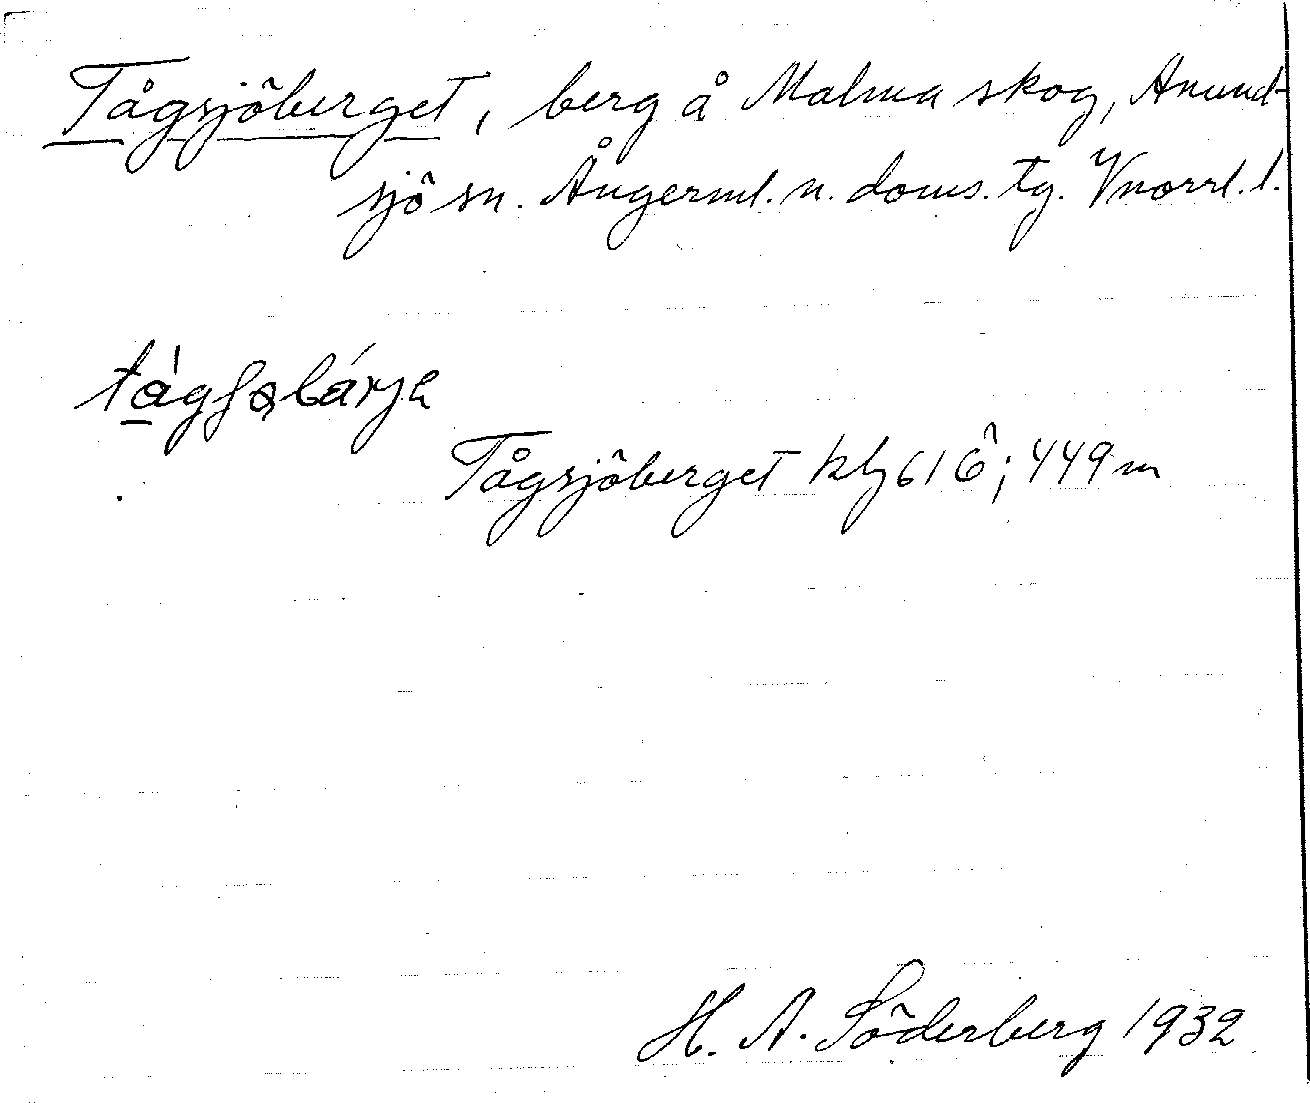 Tågsjöberget, berg å Malma skog, Anund-
sjö sn. Ångerml. n. doms. tg. Vnorrl. l.
Tågsjöberget kbl 61 ö; 449 m
H. A. Söderberg 1932